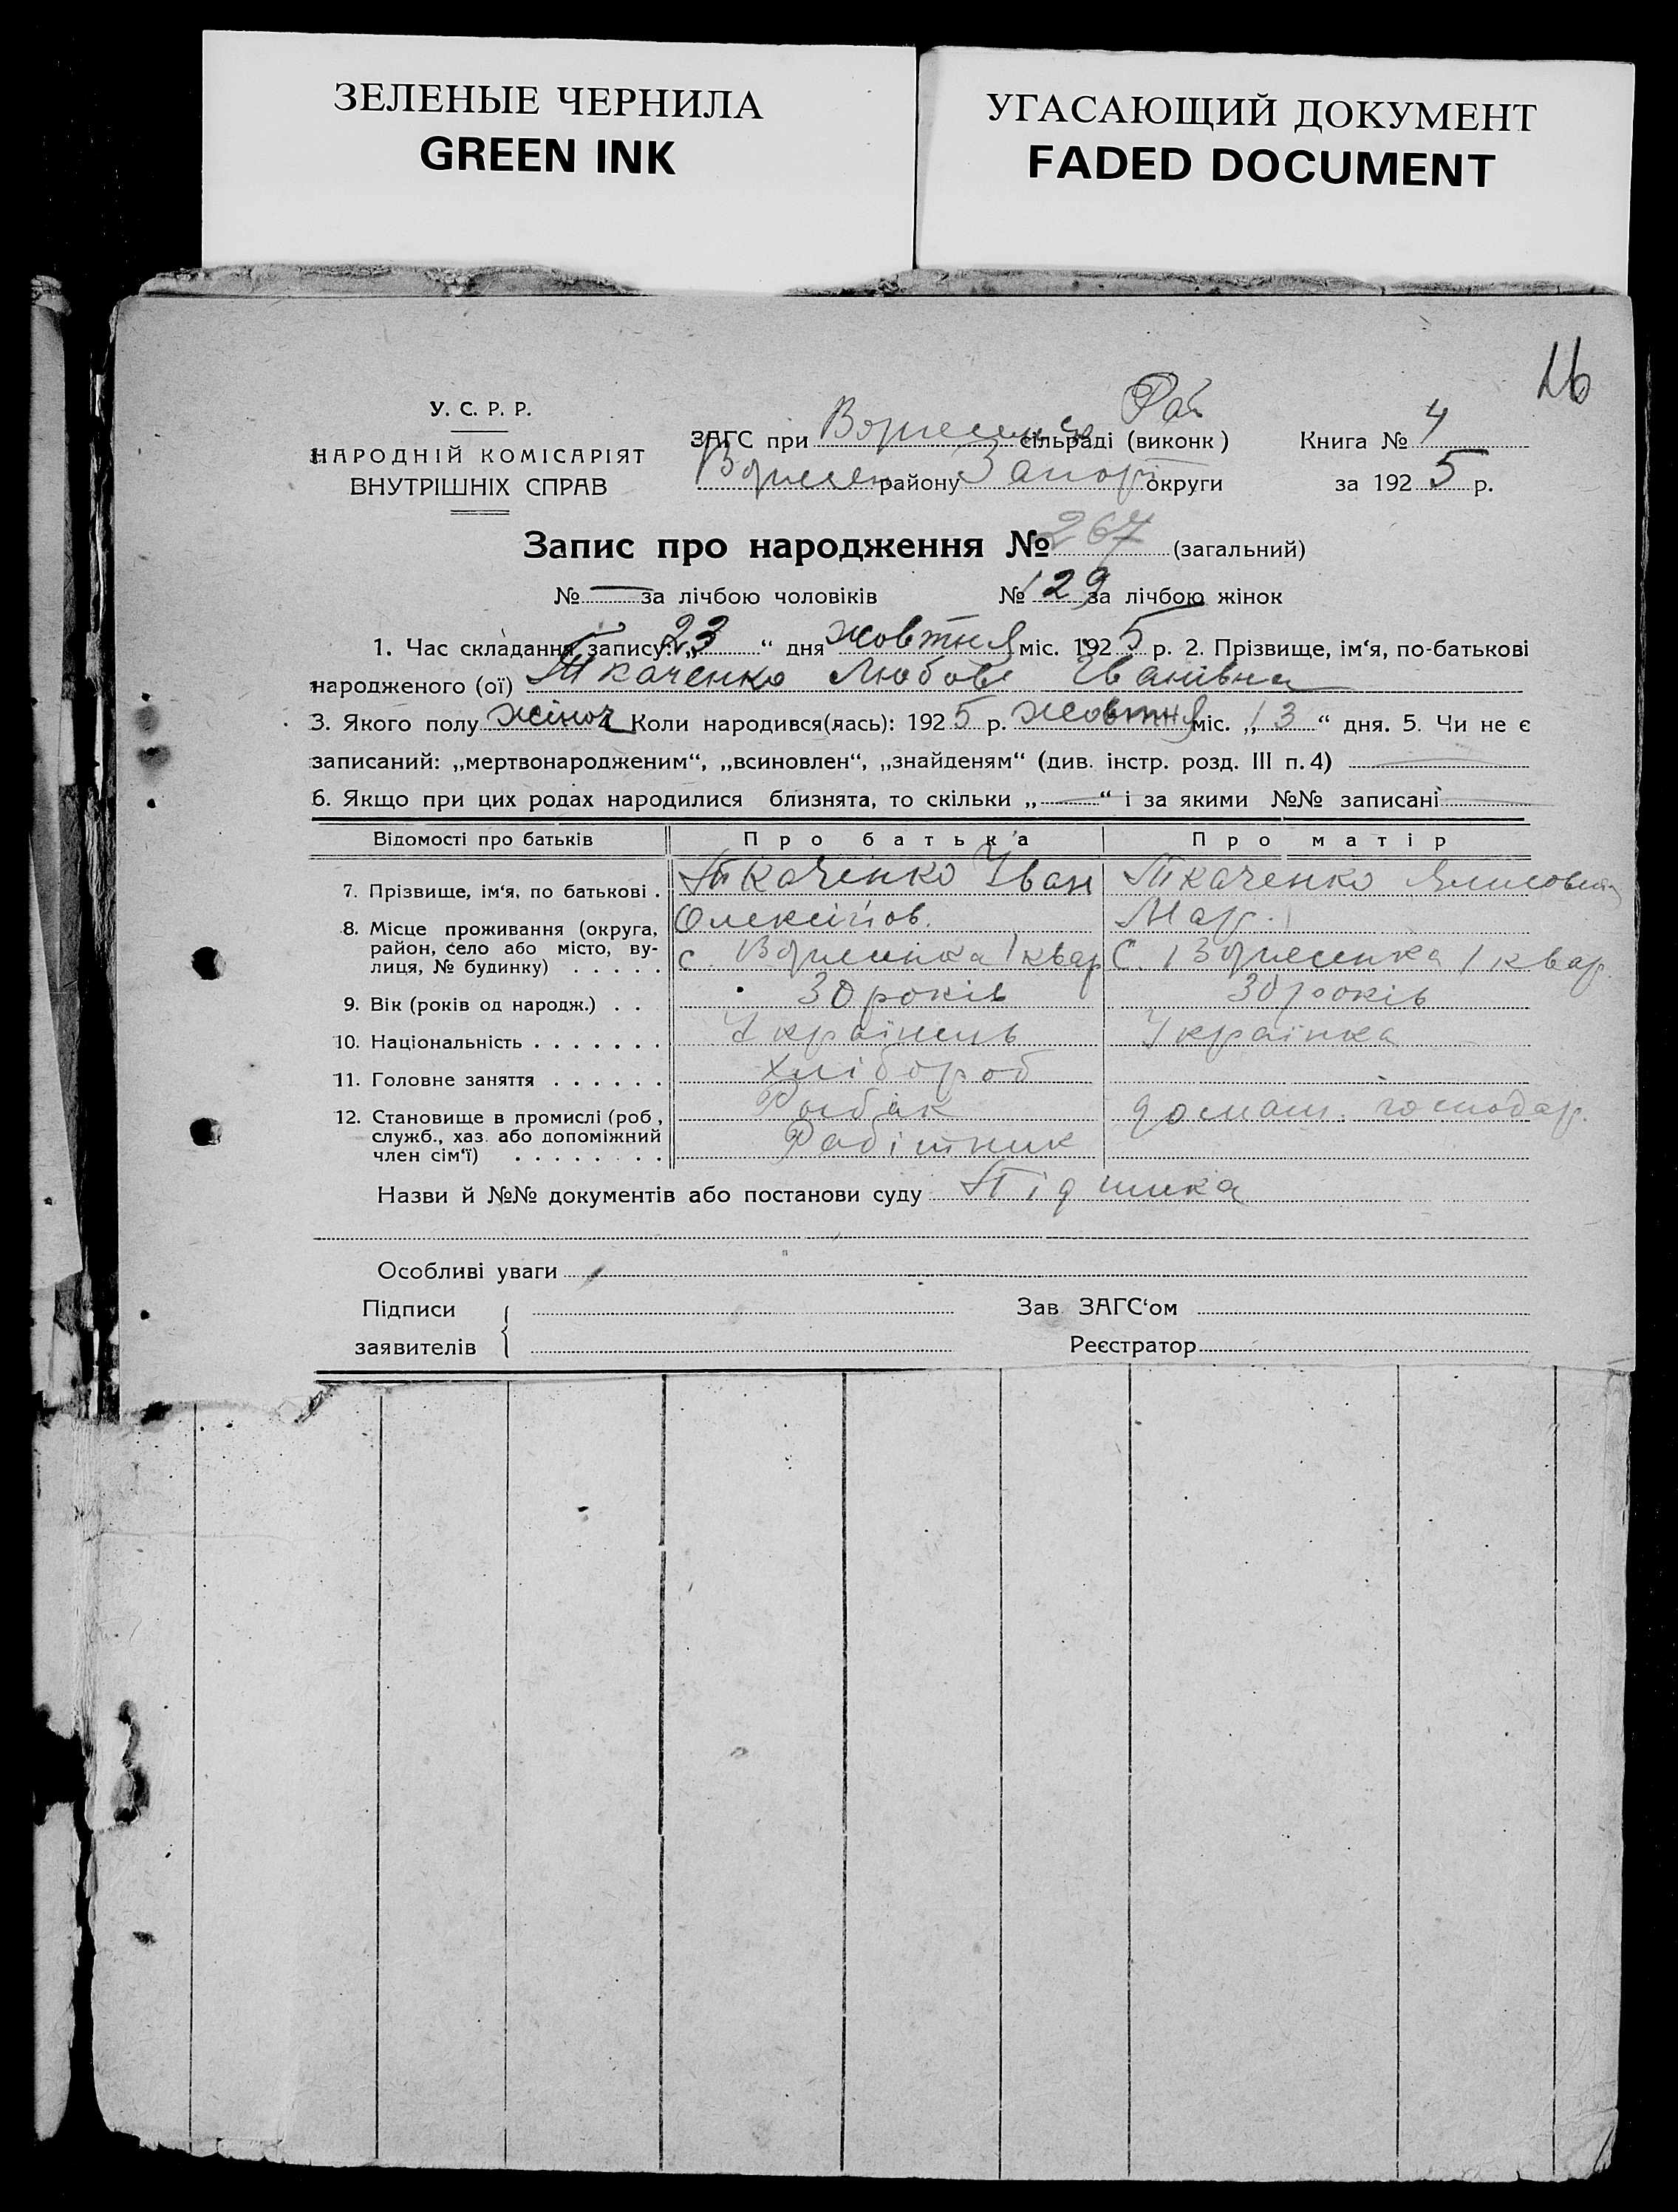 ЗЕЛЕНЫЕ ЧЕРНИЛА
GREEN INK
УГАСАЮЩИЙ ДОКУМЕНТ
FADED DOCUMENT
16
У. С. Р. Р.
НАРОДНІЙ КОМІСАРІЯТ
ВНУТРІШНІХ СПРАВ
ЗАГС при сільраді (виконк) Рай
району Запор округи
Книга № 4
за 1925 р.
Запис про народження № 267 (загальний)
№ — за лічбою чоловіків № 129 за лічбою жінок
1. Час складання запису: „23“ дня жовтня міс. 1925 р. 2. Прізвище, ім‘я, по-батькові
народженого (ої) Ткаченко Любовь Іванівна
3. Якого полу жіноч 4. Коли народився(лась): 1925 р. жовтня міс. „13“ дня. 5. Чи не є
записаний: „мертвонародженим“, „всиновлен“, „знайденям“ (див. інстр. розд. III п. 4) —
6. Якщо при цих родах народилися близнята, то скільки „—“ і за якими №№ записані —
Відомості про батьків Про батька Про матір
7. Прізвище, ім‘я, по батькові . Ткаченко Іван Ткаченко
Олексійов. Мар.
8. Місце проживання (округа, район, село або місто, вулиця, № будинку) . . . . . с. Вознесенка 1 квар С. Вознесенка 1 квар.
9. Вік (років од народж.) . . 30 років 30 років
10. Національність . . . . . . . Українець Українка
11. Головне заняття . . . . . . хлібороб
12. Становище в промислі (роб., служб., хаз. або допоміжний член сім‘ї) . . . . . . . . Рыбак домаш. господар.
Робітник
Назви й №№ документів або постанови суду
Особливі уваги
Підписи
заявителів
Зав. ЗАГС‘ом
Реєстратор